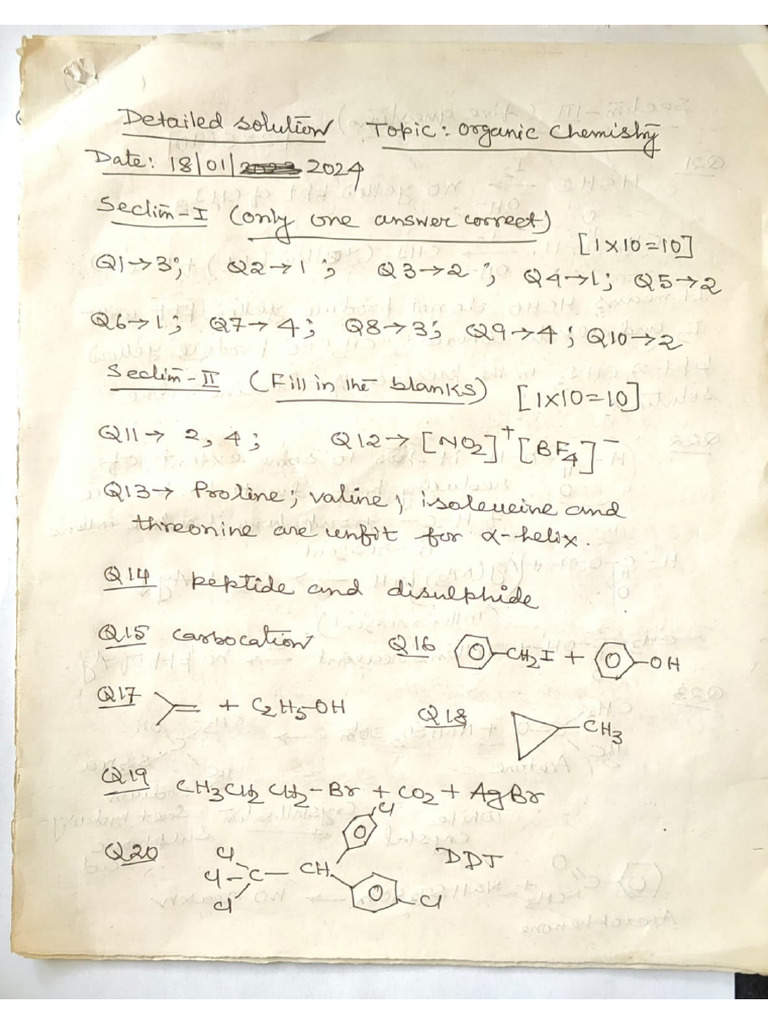 Detailed solution Topic: Organic Chemistry
Date: 18/01/2024
Section-I (only one answer correct)
[1x10=10]
Q1→3; Q2→1; Q3→2; Q4→1; Q5→2
Q6→1; Q7→4; Q8→3; Q9→4; Q10→2
Section-II (Fill in the blanks) [1x10=10]
Q11→ 2, 4; Q12→ [NO2]+ [BF4]−
Q13→ Proline; valine; isoleucine and
threonine are unfit for α-helix.
Q14 peptide and disulphide
Q15 carbocation Q16 CH2I + OH
Q17 + C2H5-OH Q18 CH3
Q19 CH3CH2CH2-Br + CO2 + AgBr
Cl
Q20 Cl DDT
Cl-C-CH
Cl Cl